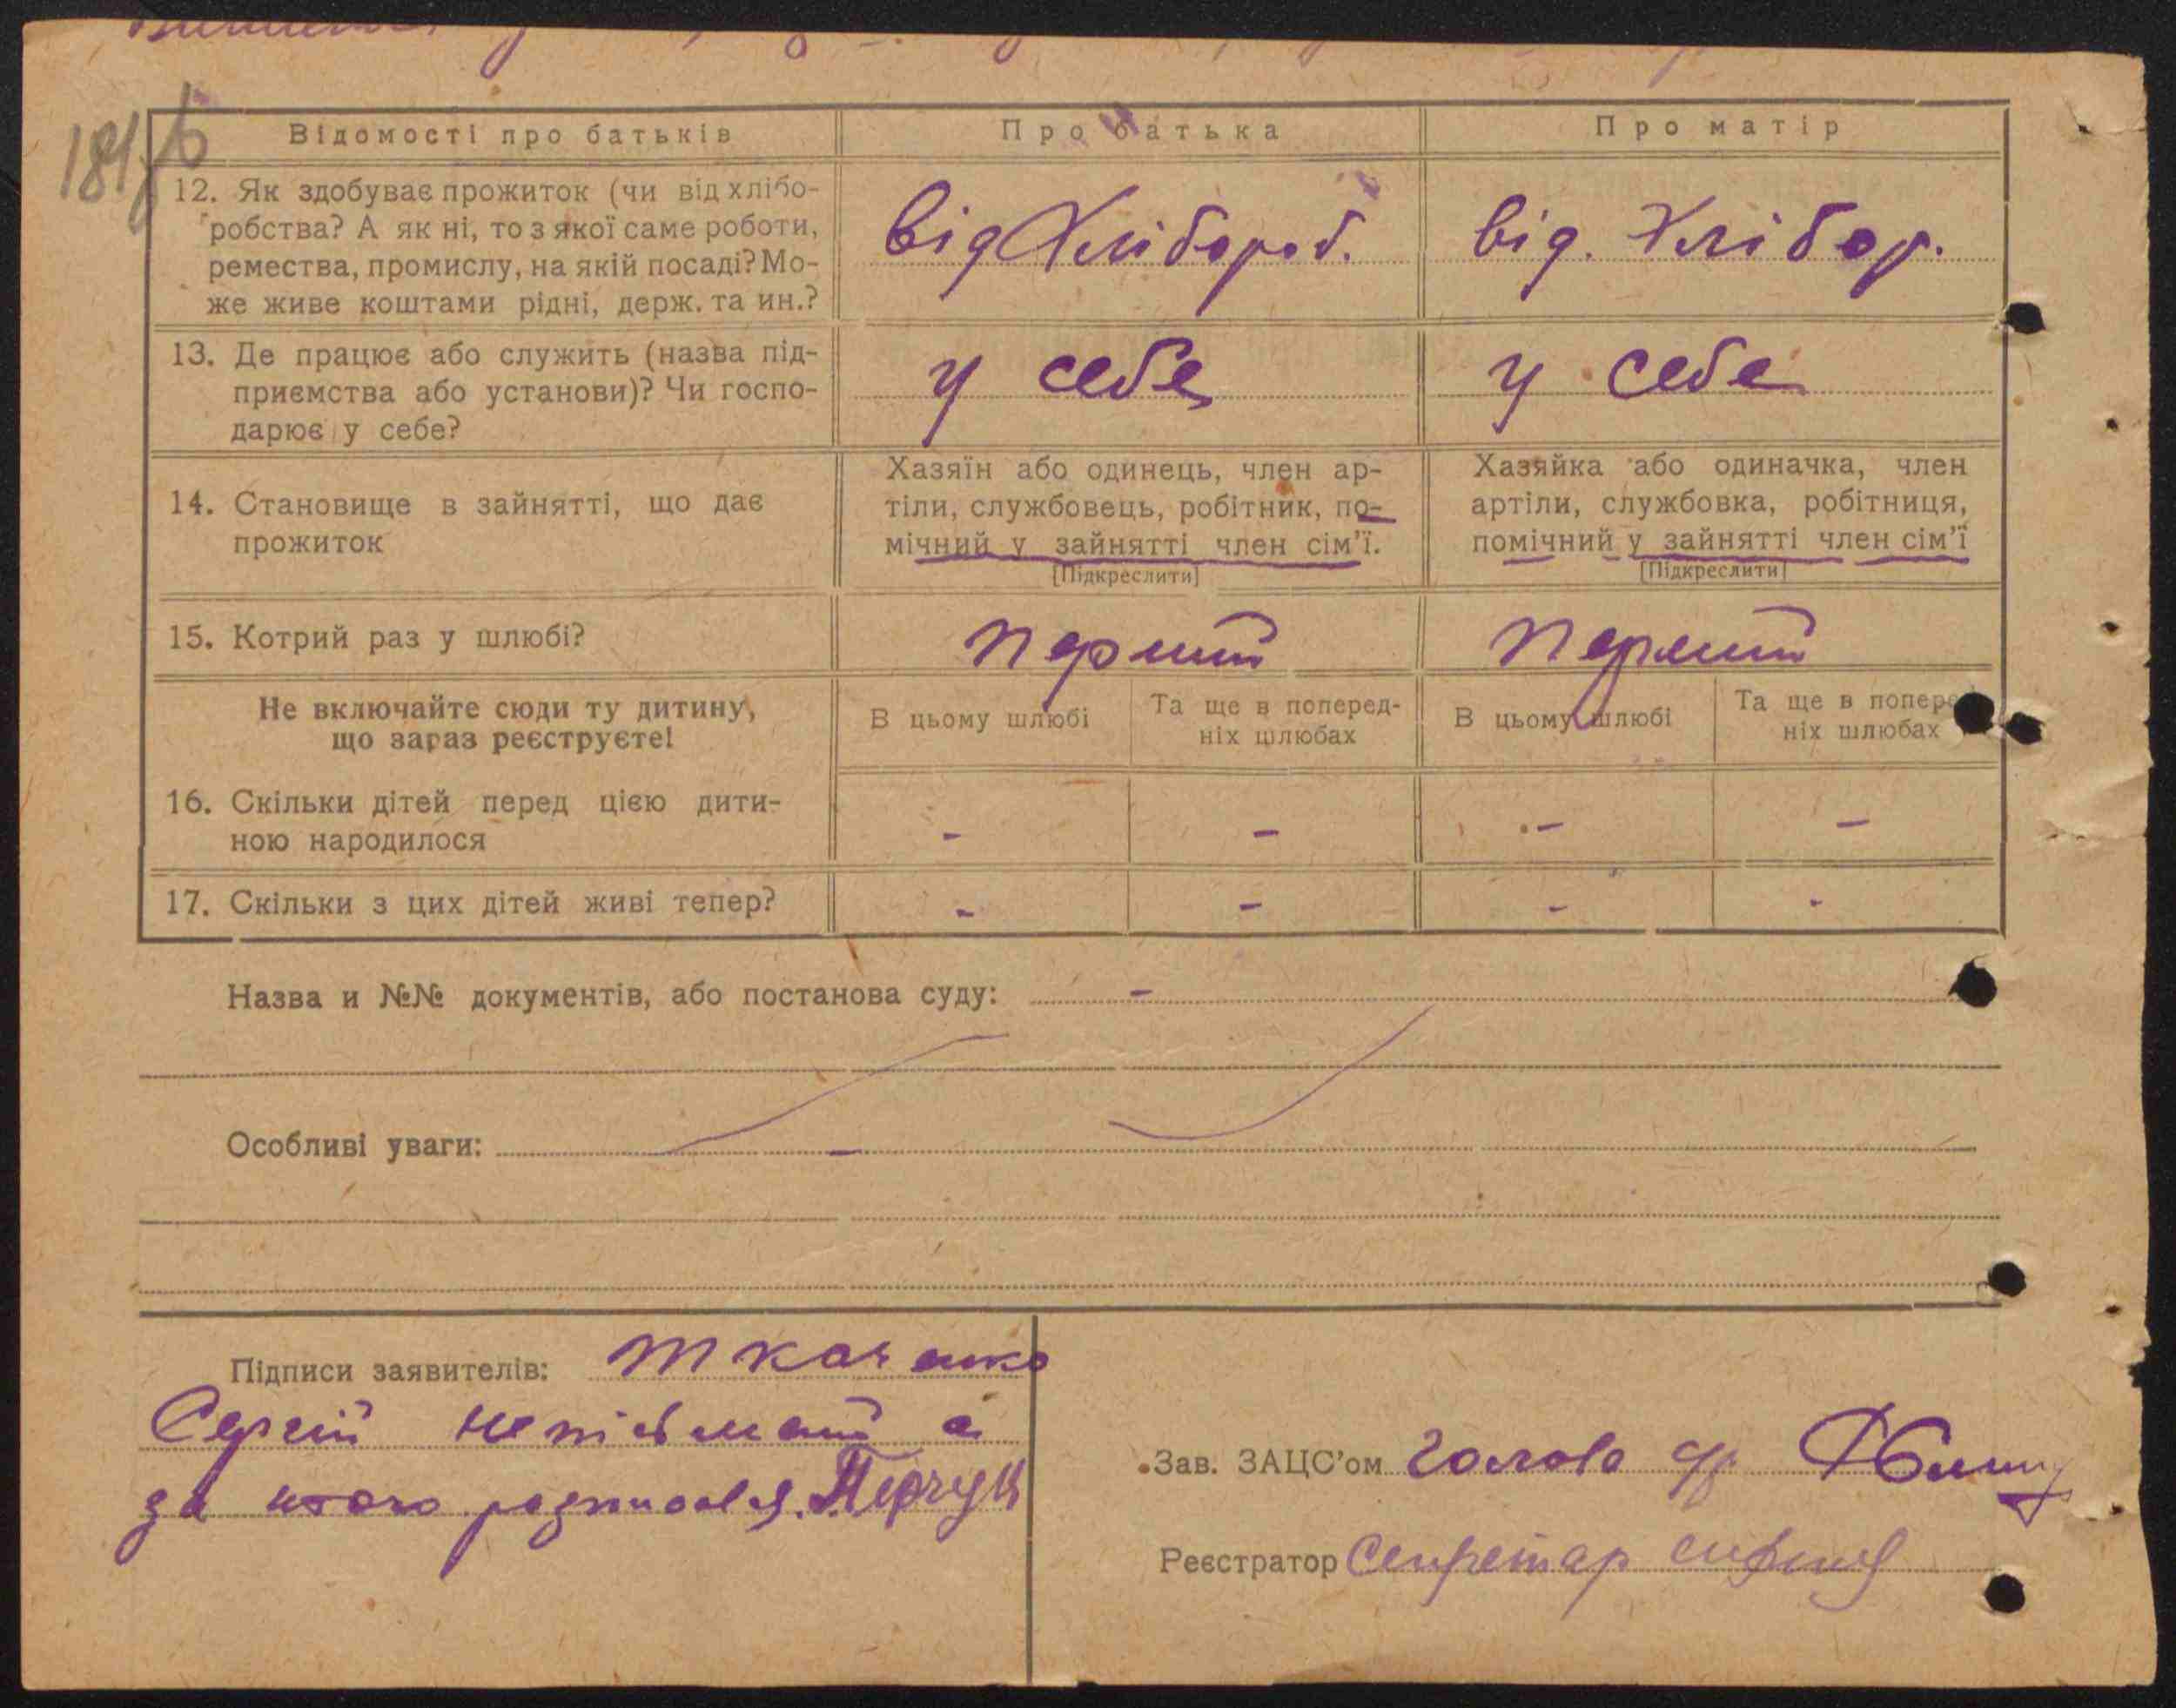 Відомості про батьків
Про батька
Про матір
12. Як здобуває прожиток (чи від хлібо-
робства? А як ні, то з якої саме роботи,
ремества, промислу, на якій посаді? Мо-
же живе коштами рідні, держ. та ин.?
від Хлібороб.
від. Хлібор.
13. Де працює або служить (назва під-
приємства або установи)? Чи госпо-
дарює у себе?
у себе
у себе
14. Становище в зайнятті, що дає
прожиток
Хазяїн або одинець, член ар-
тіли, службовець, робітник, по-
мічний у зайнятті член сім'ї.
[Підкреслити]
Хазяйка або одиначка, член
артіли, службовка, робітниця,
помічний у зайнятті член сім'ї
[Підкреслити]
15. Котрий раз у шлюбі?
перший
перший
Не включайте сюди ту дитину,
що зараз реєструєте!
В цьому шлюбі
Та ще в поперед-
ніх шлюбах
В цьому шлюбі
Та ще в поперед-
ніх шлюбах
16. Скільки дітей перед цією дити-
ною народилося
-
-
-
-
17. Скільки з цих дітей живі тепер?
-
-
-
-
Назва и №№ документів, або постанова суду: -
Особливі уваги: -
Підписи заявителів: Ткаченко
Сергій неписьмений а
за нього розписався
Зав. ЗАЦС'ом Голова
Реєстратор Секретар